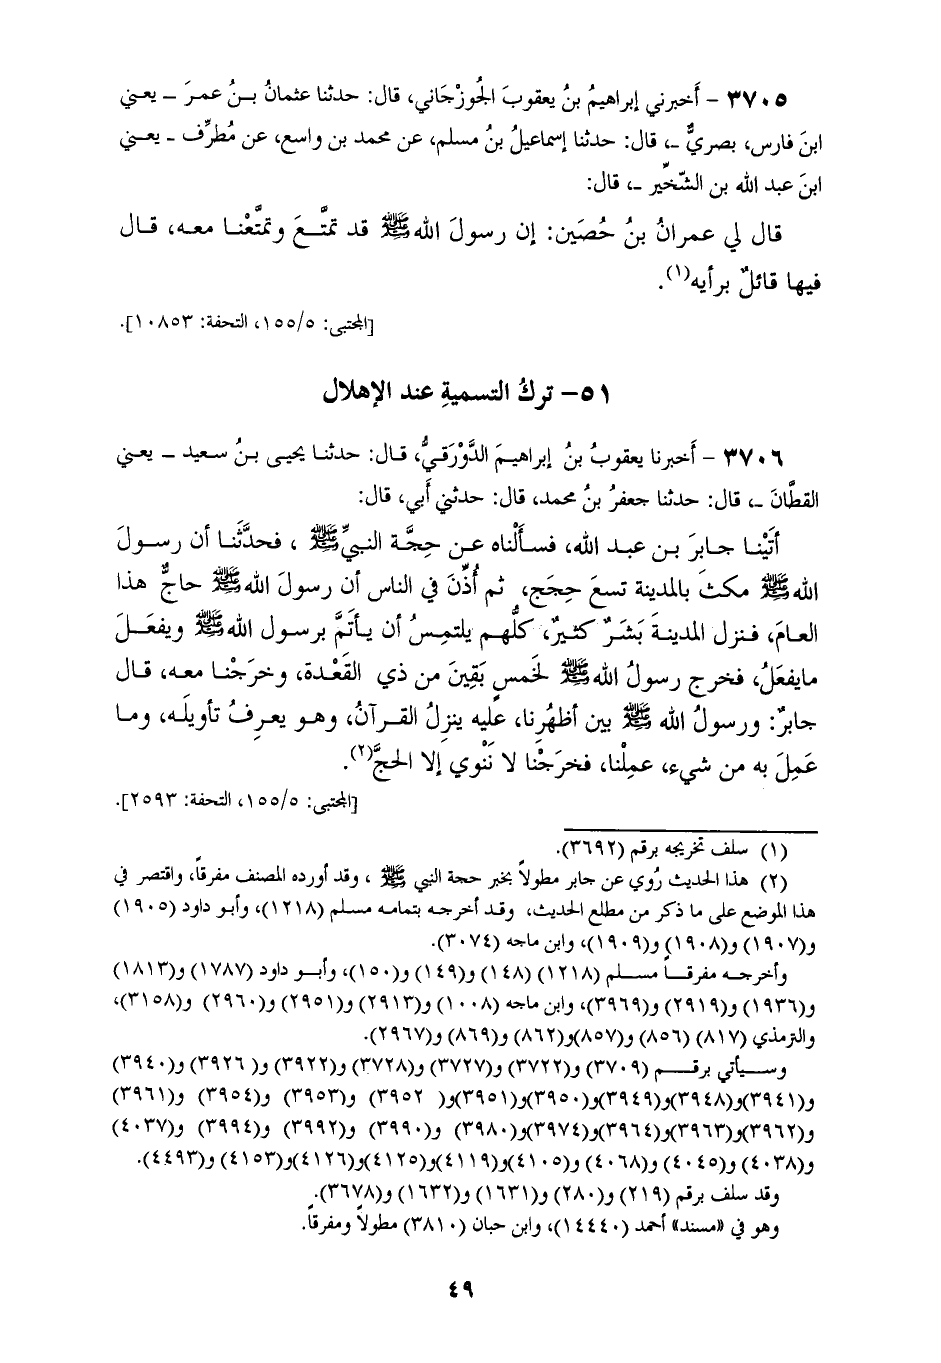 ٣٧٠٥ – أَخبرني إبراهيمُ بنُ يعقوبَ الجُوزجَاني، قال: حدثنا عثمانُ بـنُ عمرَ – يعني
ابنَ فارس، بصريٌّ –، قال: حدثنا إسماعيلُ بنُ مسلم، عن محمد بن واسع، عن مُطرِّف – يعـني
ابنَ عبد الله بن الشّخّير –، قال:
قال لي عمرانُ بنُ حُصَين: إن رسولَ الله ﷺ قد تمتَّـعَ وتمتَّعْنـا معـه، قـال
فيها قائلٌ برأيه(١).
[المجتبى: ١٥٥/٥، التحفة: ١٠٨٥٣].
٥١– تركُ التسميةِ عند الإهلال
٣٧٠٦ – أَخبرنا يعقوبُ بنُ إبراهيـمَ الدَّوْرَقيُّ، قـال: حدثنـا يحيـى بـنُ سـعيد – يعـني
القطَّانَ –، قال: حدثنا جعفرُ بنُ محمد، قال: حدثني أَبي، قال:
أتَيْنـا جـابرَ بـن عبـد الله، فسـألْناه عـن حِجَّـة النبيِّ ﷺ ، فحدَّثَنـا أن رسـولَ
الله ﷺ مكثَ بالمدينة تسعَ حِجَجٍ، ثم أُذِّنَ في الناس أن رسولَ الله ﷺ حاجٌّ هذا
العـامَ، فـنزل المدينـةَ بَشَـرٌ كثـيرٌ، كلُّهـم يلتمِـسُ أن يـأتَمَّ برسـول الله ﷺ ويفعَـلَ
مايفعَلُ، فخرج رسولُ الله ﷺ لخَمسٍ بَقِينَ من ذي القَعْدة، وخرَجْنـا معـه، قـال
جابرٌ: ورسولُ الله ﷺ بين أظهُرِنا، عليه ينزِلُ القـرآنُ، وهـو يعـرِفُ تأويلَـه، ومـا
عَمِلَ به من شيء، عمِلْنا، فخرَجْنا لا نَنْوي إلا الحجَّ(٢).
[المجتبى: ١٥٥/٥، التحفة: ٢٥٩٣].
(١) سلف تخريجه برقم (٣٦٩٢).
(٢) هذا الحديث رُوي عن جابر مطولاً بخبر حجة النبي ﷺ ، وقد أورده المصنف مفرقاً، واقتصر في
هذا الموضع على ما ذكر من مطلع الحديث، وقـد أخرجـه بتمامـه مسلم (١٢١٨)، وأبـو داود (١٩٠٥)
و(١٩٠٧) و(١٩٠٨) و(١٩٠٩)، وابن ماجه (٣٠٧٤).
وأخرجـه مفرقـاً مسـلم (١٢١٨) (١٤٨) و(١٤٩) و(١٥٠)، وأبـو داود (١٧٨٧) و(١٨١٣)
و(١٩٣٦) و(٢٩١٩) و(٣٩٦٩)، وابن ماجه (١٠٠٨) و(٢٩١٣) و(٢٩٥١) و(٢٩٦٠) و(٣١٥٨)،
والترمذي (٨١٧) (٨٥٦) و(٨٥٧)و(٨٦٢) و(٨٦٩) و(٢٩٦٧).
وســيأتي برقــم (٣٧٠٩) و(٣٧٢٢) و(٣٧٢٧) و(٣٧٢٨) و(٣٩٢٢) و( ٣٩٢٦) و(٣٩٤٠)
و(٣٩٤١)و(٣٩٤٨)و(٣٩٤٩)و(٣٩٥٠)و(٣٩٥١)و( ٣٩٥٢) و(٣٩٥٣) و(٣٩٥٤) و(٣٩٦١)
و(٣٩٦٢)و(٣٩٦٣)و(٣٩٦٤)و(٣٩٧٤)و(٣٩٨٠) و(٣٩٩٠) و(٣٩٩٢) و(٣٩٩٤) و(٤٠٣٧)
و(٤٠٣٨) و(٤٠٤٥) و(٤٠٦٨) و(٤١٠٥)و(٤١١٩)و(٤١٢٥)و(٤١٢٦)و(٤١٥٣) و(٤٤٩٣).
وقد سلف برقم (٢١٩) و(٢٨٠) و(١٦٣١) و(١٦٣٢) و(٣٦٧٨).
وهو في «مسند» أحمد (١٤٤٤٠)، وابن حبان (٣٨١٠) مطولاً ومفرقاً.
٤٩